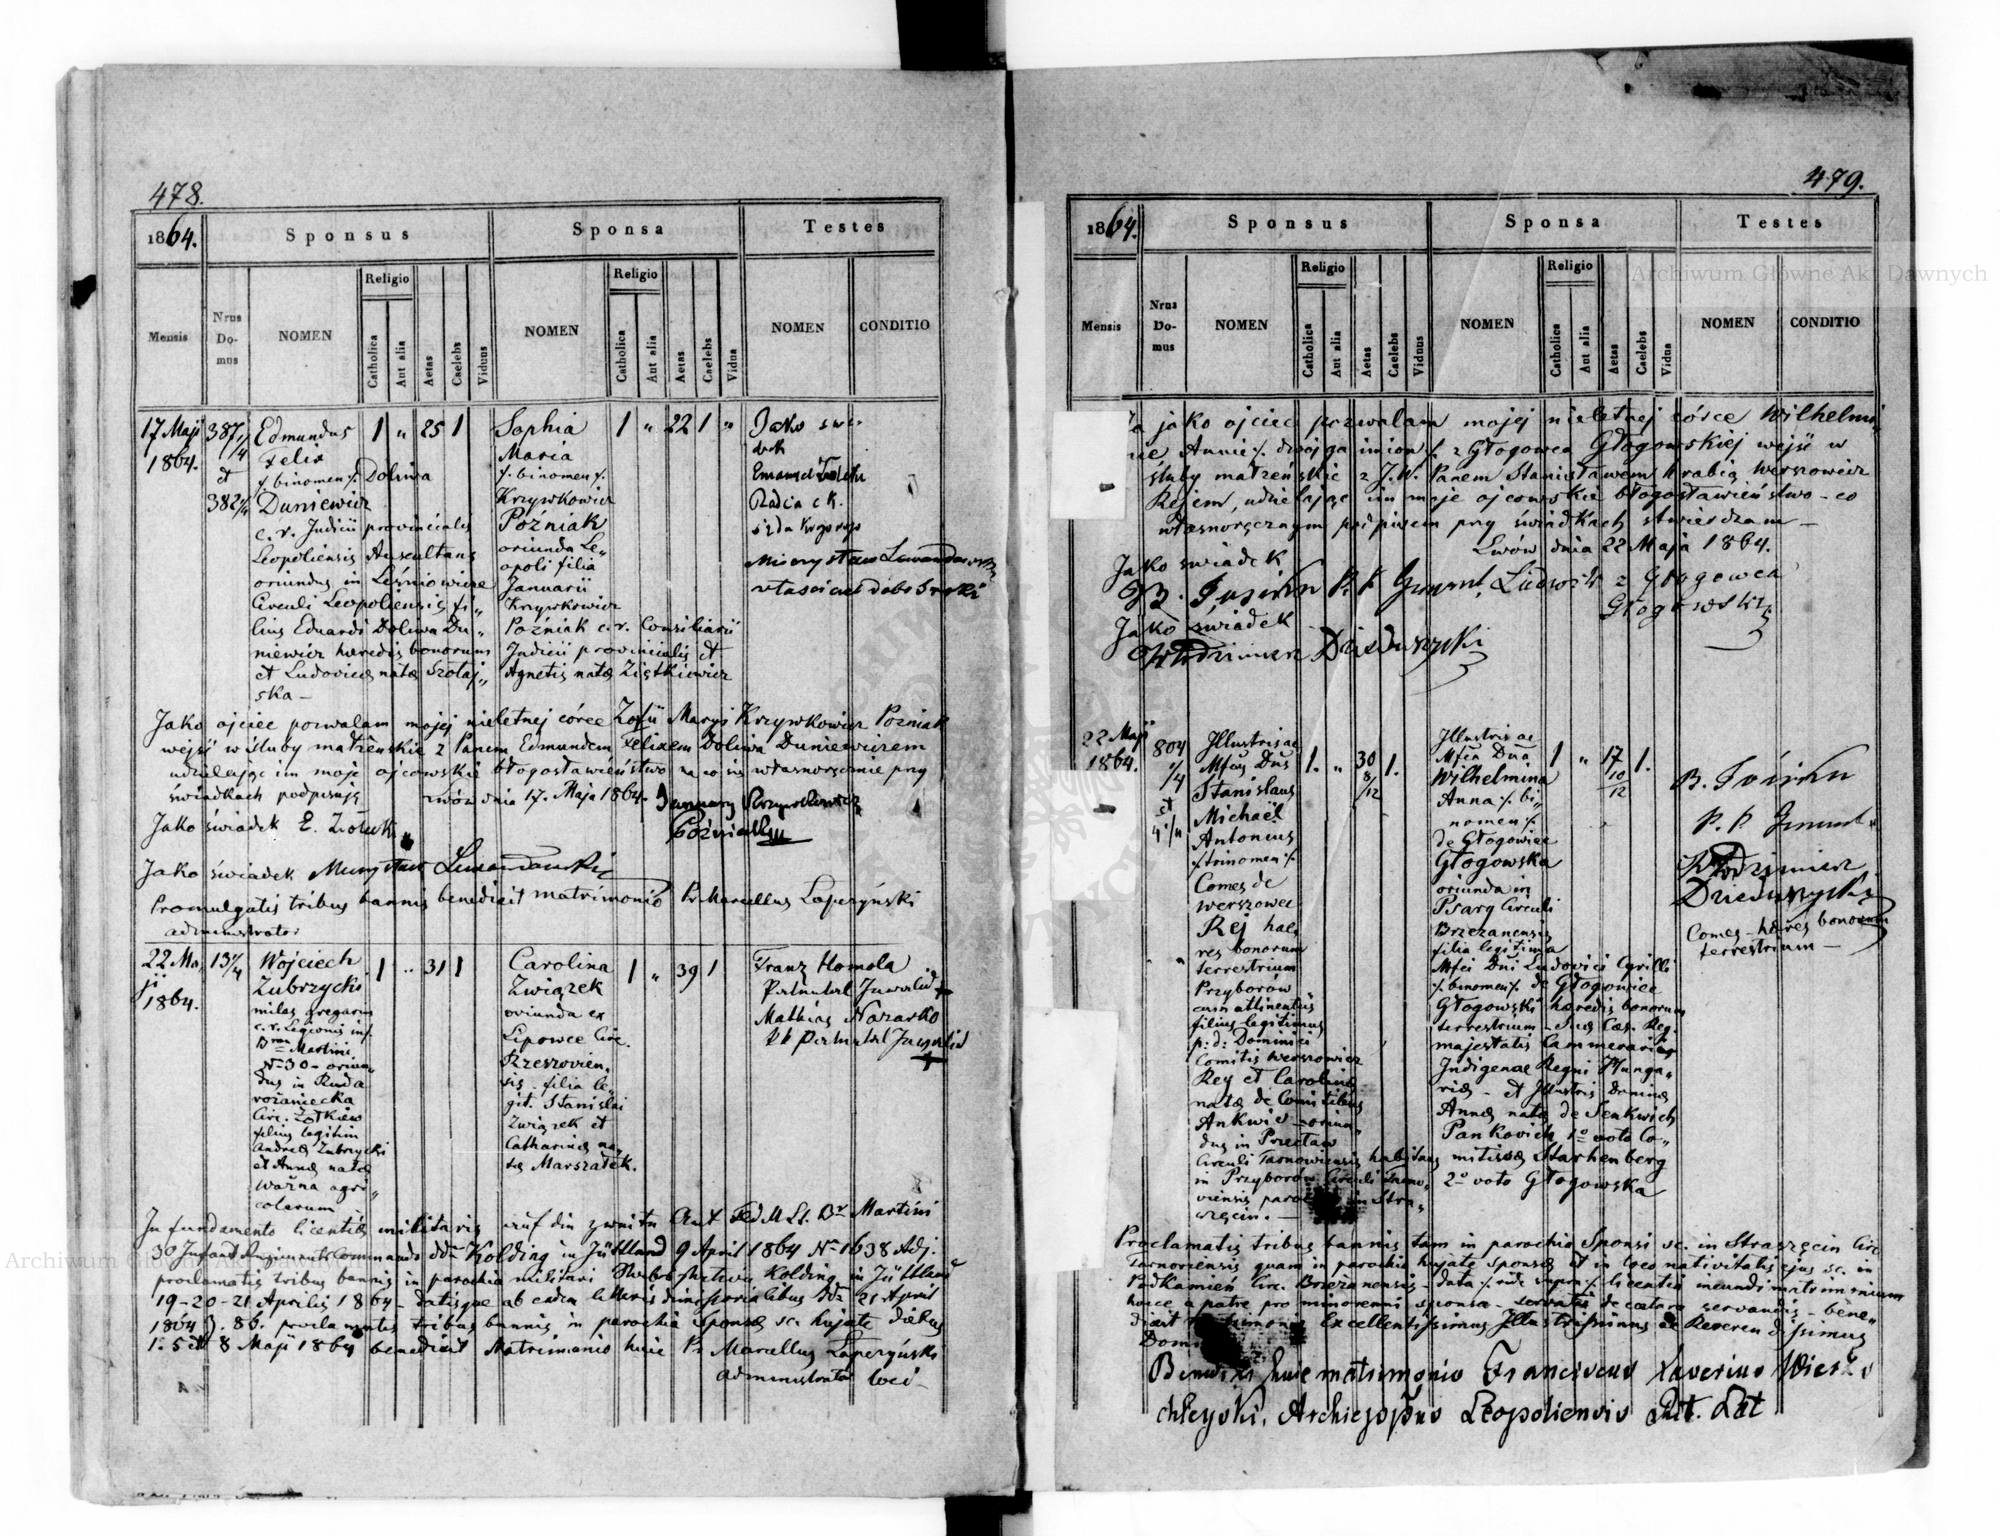 478.
1864.
Sponsus
Sponsa
Testes
Mensis
Nrus Do- mus
NOMEN
Religio
Catholica
Aut alia
Aetas
Caelebs
Viduus
NOMEN
Religio
Catholica
Aut alia
Aetas
Caelebs
Vidua
NOMEN
CONDITIO
17 Maji
1864.
387 1/4
et
382 1/4
Edmundus
Felix
/. binomen /. Doliwa
Duniewicz
c. r. Judicii provincialis
Leopoliensis Auscultans
oriundus in Leśniowice
Circuli Leopoliensis fi„
lius Eduardi Doliwa Du„
niewicz hæredis bonorum
et Ludovicæ natæ Szołaj„
ska –
1 „ 25 1
Sophia
Maria
/. binomen /.
Krzywkowicz
Poźniak
oriunda Le„
opoli filia
Januarii
Krzywkowicz
Poźniak c. r. Consiliarii
Judicii provincialis et
Agnetis natæ Ziętkiewicz
1 „ 22 1 „
Jako
Emanuel
Radca c k.
właściciel dóbr
Jako ojciec pozwalam mojej nieletnej córce Zofii Maryi Krzywkowicz Poźniak
wejść w śluby małżeńskie z Panem Edmundem Felixem Doliwa Duniewiczem
udzielając im moje ojcowskie błogosławieństwo na co się własnoręcznie przy
świadkach podpisuję
Lwów dnia 17. Maja 1864.
January Krzywkowicz
Poźniak
Jako świadek E.
Jako świadek Lewandowski
Promulgatis tribus bannis benedixit matrimonio Pr Marcellus Łapczyński
administrator
22 Ma„
ji
1864.
13 1/4
Wojciech
Zubrzycki
miles gregarius
c. r. Legionis inf.
Bron Martini
N 30 – oriun„
dus in Ruda
rożaniecka
Circ. Żółkiew
filius legitim
Andreæ Zubrzycki
et Annæ natæ
Ważna agri„
colarum
1 „ 31 1
Carolina
Związek
oriunda ex
Lipowce Circ.
Rzeszovien„
sis – filia le„
git. Stanislai
Związek et
Catharinæ na„
tæ Marszałek.
1 „ 39 1
Franz Homola
Patental Invalid +
Mathias Nazarko
Patental Invalid
+
In fundamento licentiæ militaris
Martini
Kolding in Jüttland 9 April 1864 N 1638 Adj.
proclamatis tribus bannis in parochia militari Kolding in Jüttland
19–20–21 Aprilis 1864 – datisque ab eadem litteris dimissorialibus 21 April
1864 J. 86. proclamatis tribus bannis in parochia Sponsæ sc. hujate diebus
1. 5 et 8 Maji 1864 benedixit Matrimonio huic Pr Marcellus Łapczyński
administrator loci –
479.
1864.
Sponsus
Sponsa
Testes
Mensis
Nrus Do- mus
NOMEN
Religio
Catholica
Aut alia
Aetas
Caelebs
Viduus
NOMEN
Religio
Catholica
Aut alia
Aetas
Caelebs
Vidua
NOMEN
CONDITIO
Ja jako ojciec pozwalam mojej nieletnej córce Wilhelmi„
nie Annie /. dwojga imion /. z Głogowca Głogowskiej wejść w
śluby małżeńskie z J.W. Panem Stanisławem Hrabią Werszowcz
Rejem, udzielając im moje ojcowskie błogosławieństwo – co
własnoręcznym podpisem przy świadkach stwierdzam –
Lwów dnia 22 Maja 1864.
Jako świadek
Ludwik z Głogowca
Głogowski
Jako świadek
Włodzimierz Dzieduszycki
22 Maji
1864.
804
1/4
et
4 1/4
Illustris ac
Mfcus Dnus
Stanislaus
Michaël
Antonius
/. trinomen /.
Comes de
Werszowec
Rej hæ„
res bonorum
terrestrium
Przyborów
cum attinentiis
filius legitimus
p. d. Dominici
Comitis Werszowicz
Rey et Carolinæ
natæ de Comitibus
Ankwic – oriun„
dus in Przecław
Circuli Tarnoviensis habitans
in Przyborów Circuli Tarno„
viensis paroch in Stra„
szęcin. –
1. „ 30 8/12 1.
Illustris ac
Mfca Dna
Wilhelmina
Anna /. bi„
nomen /.
de Głogowiec
Głogowska
oriunda in
Psary Circuli
Brzezanensis
filia legitima
Mfci Dni Ludovici Cyrilli
/. binomen /. de Głogowiec
Głogowski hæredis bonorum
terrestrium – Suæ Cæs. Reg.
majestatis Camerarii
Indigenæ Regni Hunga„
riæ – et Illustris Dominæ
Annæ natæ de Senkwich
Pankovich 1o voto Co„
mitissæ Starhenberg
2o voto Głogowska
1 „ 17 10/12 1.
Włodzimierz
Dzieduszycki
Comes – hæres bonorum
terrestrium –
Proclamatis tribus bannis tam in parochia Sponsi sc. in Straszęcin Circ.
Tarnoviensis quam in parochia hujate Sponsæ et in loco nativitatis ejus sc. in
Podkamień Circ. Brzezanensis – data /. vide supra /. licentia ineundi matrimonium
hocce a patre pro minorenni sponsa – servatis de cætero servandis – bene„
dixit Matrimonio Excellentissimus Illustrissimus ac Reverendissimus
Domi
Benedixi huic matrimonio Franciscus Xaverius Wierz„
chleyski, Archieppus Leopoliensis Rit. Lat
Archiwum Główne Akt Dawnych
Archiwum Główne Akt Dawnych